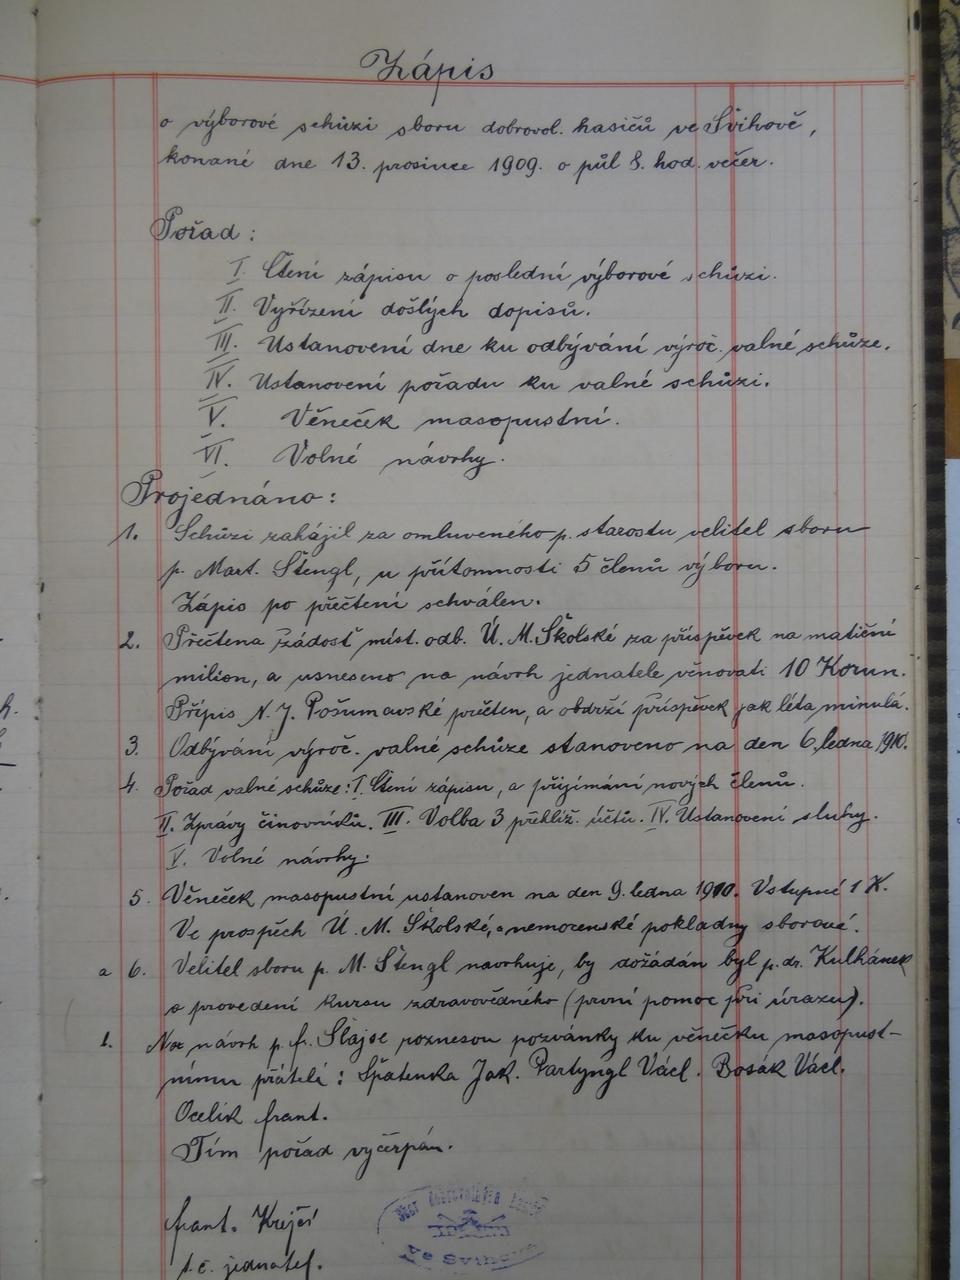 Zápis
o výborové schůzi sboru dobrovol. hasičů ve Švihově,
konané dne 13. prosince 1909. o půl 8. hod. večer.
Pořad:
I. Čtení zápisu o poslední výborové schůzi.
II. Vyřízení došlých dopisů.
III. Ustanovení dne ku odbývání výroč. valné schůze.
IV. Ustanovení pořadu ku valné schůzi.
V. Věneček masopustní.
VI. Volné návrhy.
Projednáno:
1. Schůzi zahájil za omluveného p. starostu velitel sboru
p. Mart. Štengl, u přítomnosti 5 členů výboru.
Zápis po přečtení schválen.
2. Přečtena žádosť míst. odb. Ú. M. Školské za příspěvek na matiční
milion, a usneseno na návrh jednatele věnovati 10 Korun.
Přípis N. J. Pošumavské přečten, a obdrží příspěvek jak léta minulá.
3. Odbývání výroč. valné schůze stanoveno na den 6. ledna 1910.
4. Pořad valné schůze: I. Čtení zápisu, a přijímání nových členů.
II. Zprávy činovníků. III. Volba 3 přehlíž. účtů. IV. Ustanovení sluhy.
V. Volné návrhy.
5. Věneček masopustní ustanoven na den 9. ledna 1910. Vstupné 1 K.
Ve prospěch Ú. M. Školské, a nemocenské pokladny sborové.
a 6. Velitel sboru p. M. Štengl navrhuje, by dožádán byl p. dr. Kulhánek
o provedení kursu zdravovědného (první pomoc při úrazu).
1. Na návrh p. fr. Šlajse roznesou pozvánky ku věnečku masopust-
nímu přátelé: Špatenka Jak. Partyngl Václ. Bosák Václ.
Ocelík frant.
Tím pořad vyčerpán.
frant. Krejčí
t. č. jednatel.
Sbor dobrovolných hasičů
ve Švihově